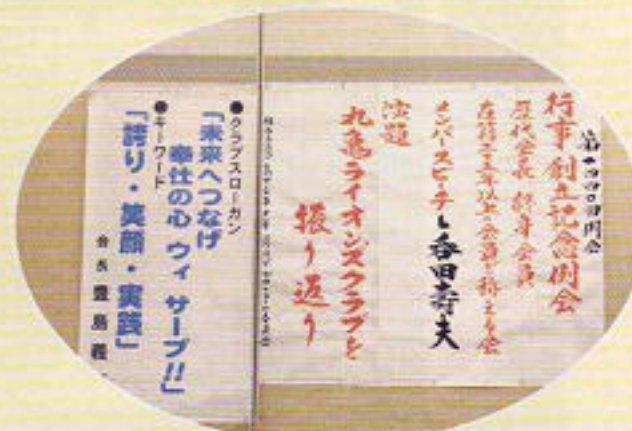 第一四四〇回例会
行事 創立記念例会
歴代会長 終身会員
在籍二十年以上会員を称える会
メンバースピーチ L 香田寿夫
演題
丸亀ライオンズクラブを
振り返り
●クラブスローガン
「未来へつなげ
奉仕の心 ウィ サーブ!!」
●キーワード
「誇り・笑顔・実践」
会長 豊島義